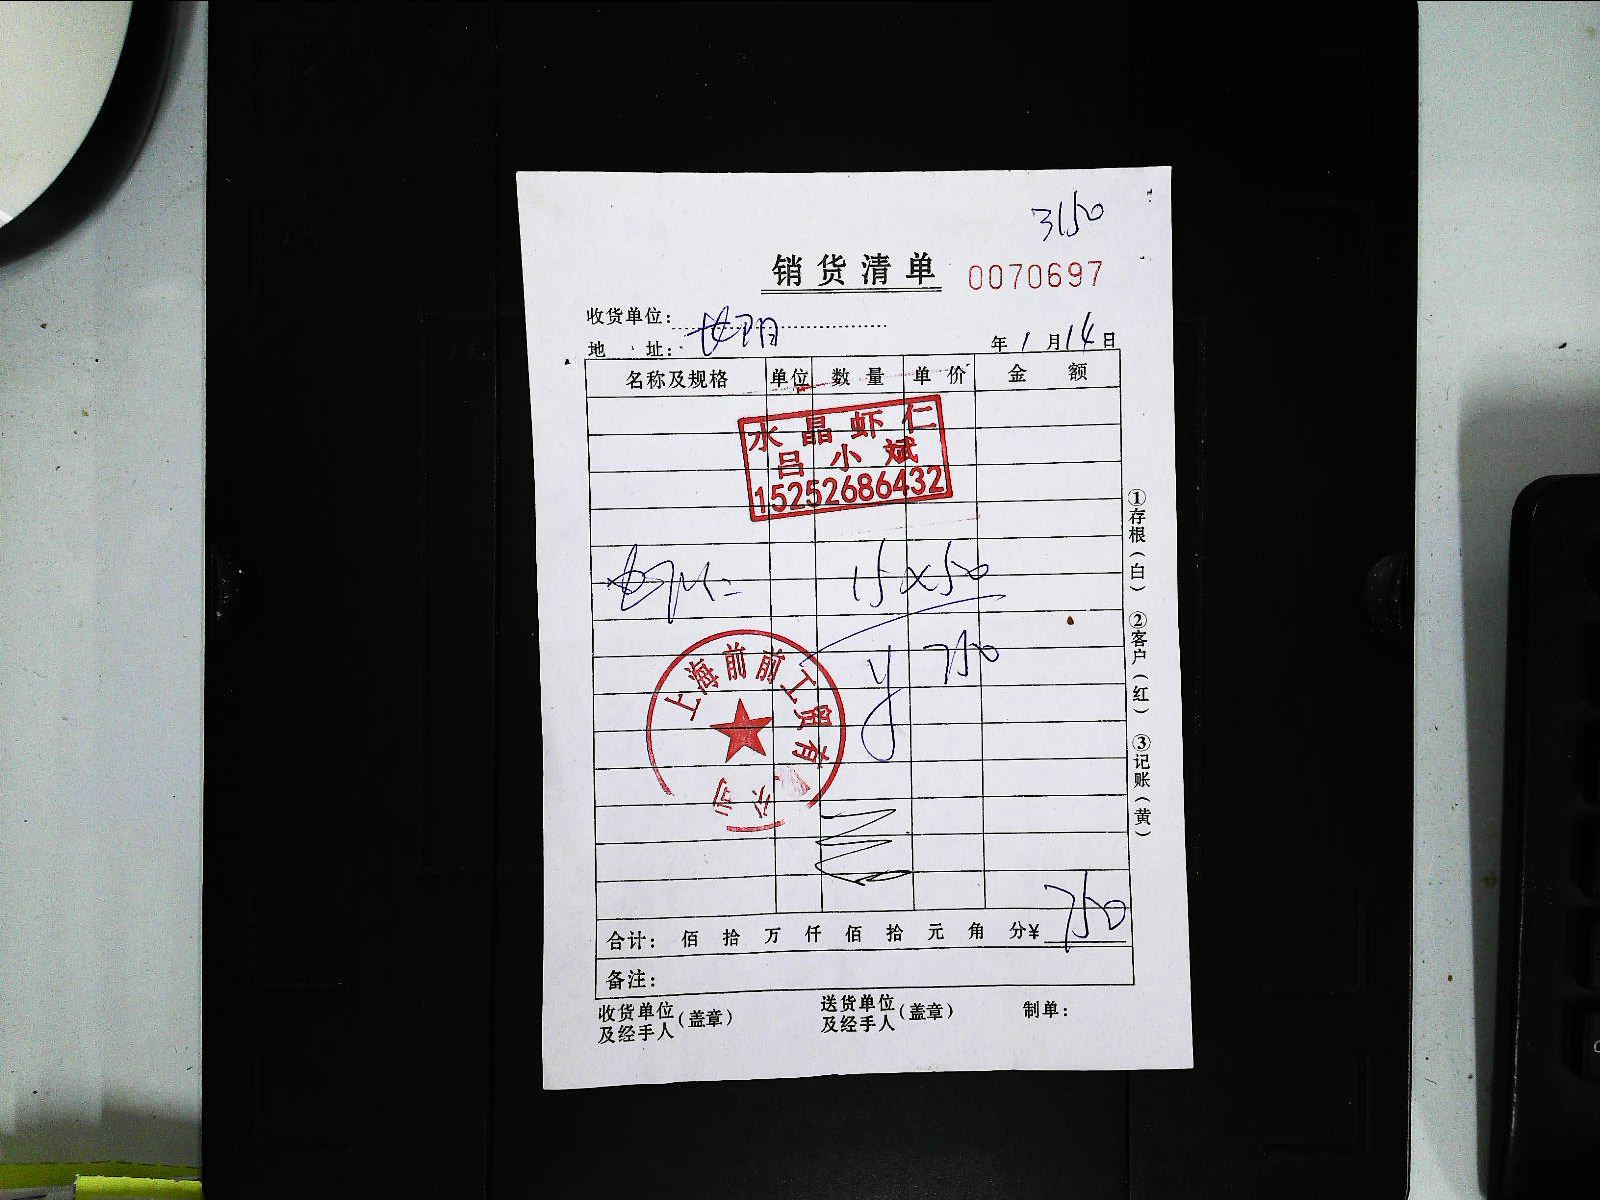 3150
销货清单 0070697
收货单位：
地 址： 年 1 月 14 日
名称及规格 单位 数量 单价 金额
水晶虾仁
吕小斌
15252686432
15×50
¥ 750
上海前前工贸有限公司
合计： 佰 拾 万 仟 佰 拾 元 角 分¥ 750
备注：
收货单位及经手人（盖章） 送货单位及经手人（盖章） 制单：
①存根（白） ②客户（红） ③记账（黄）